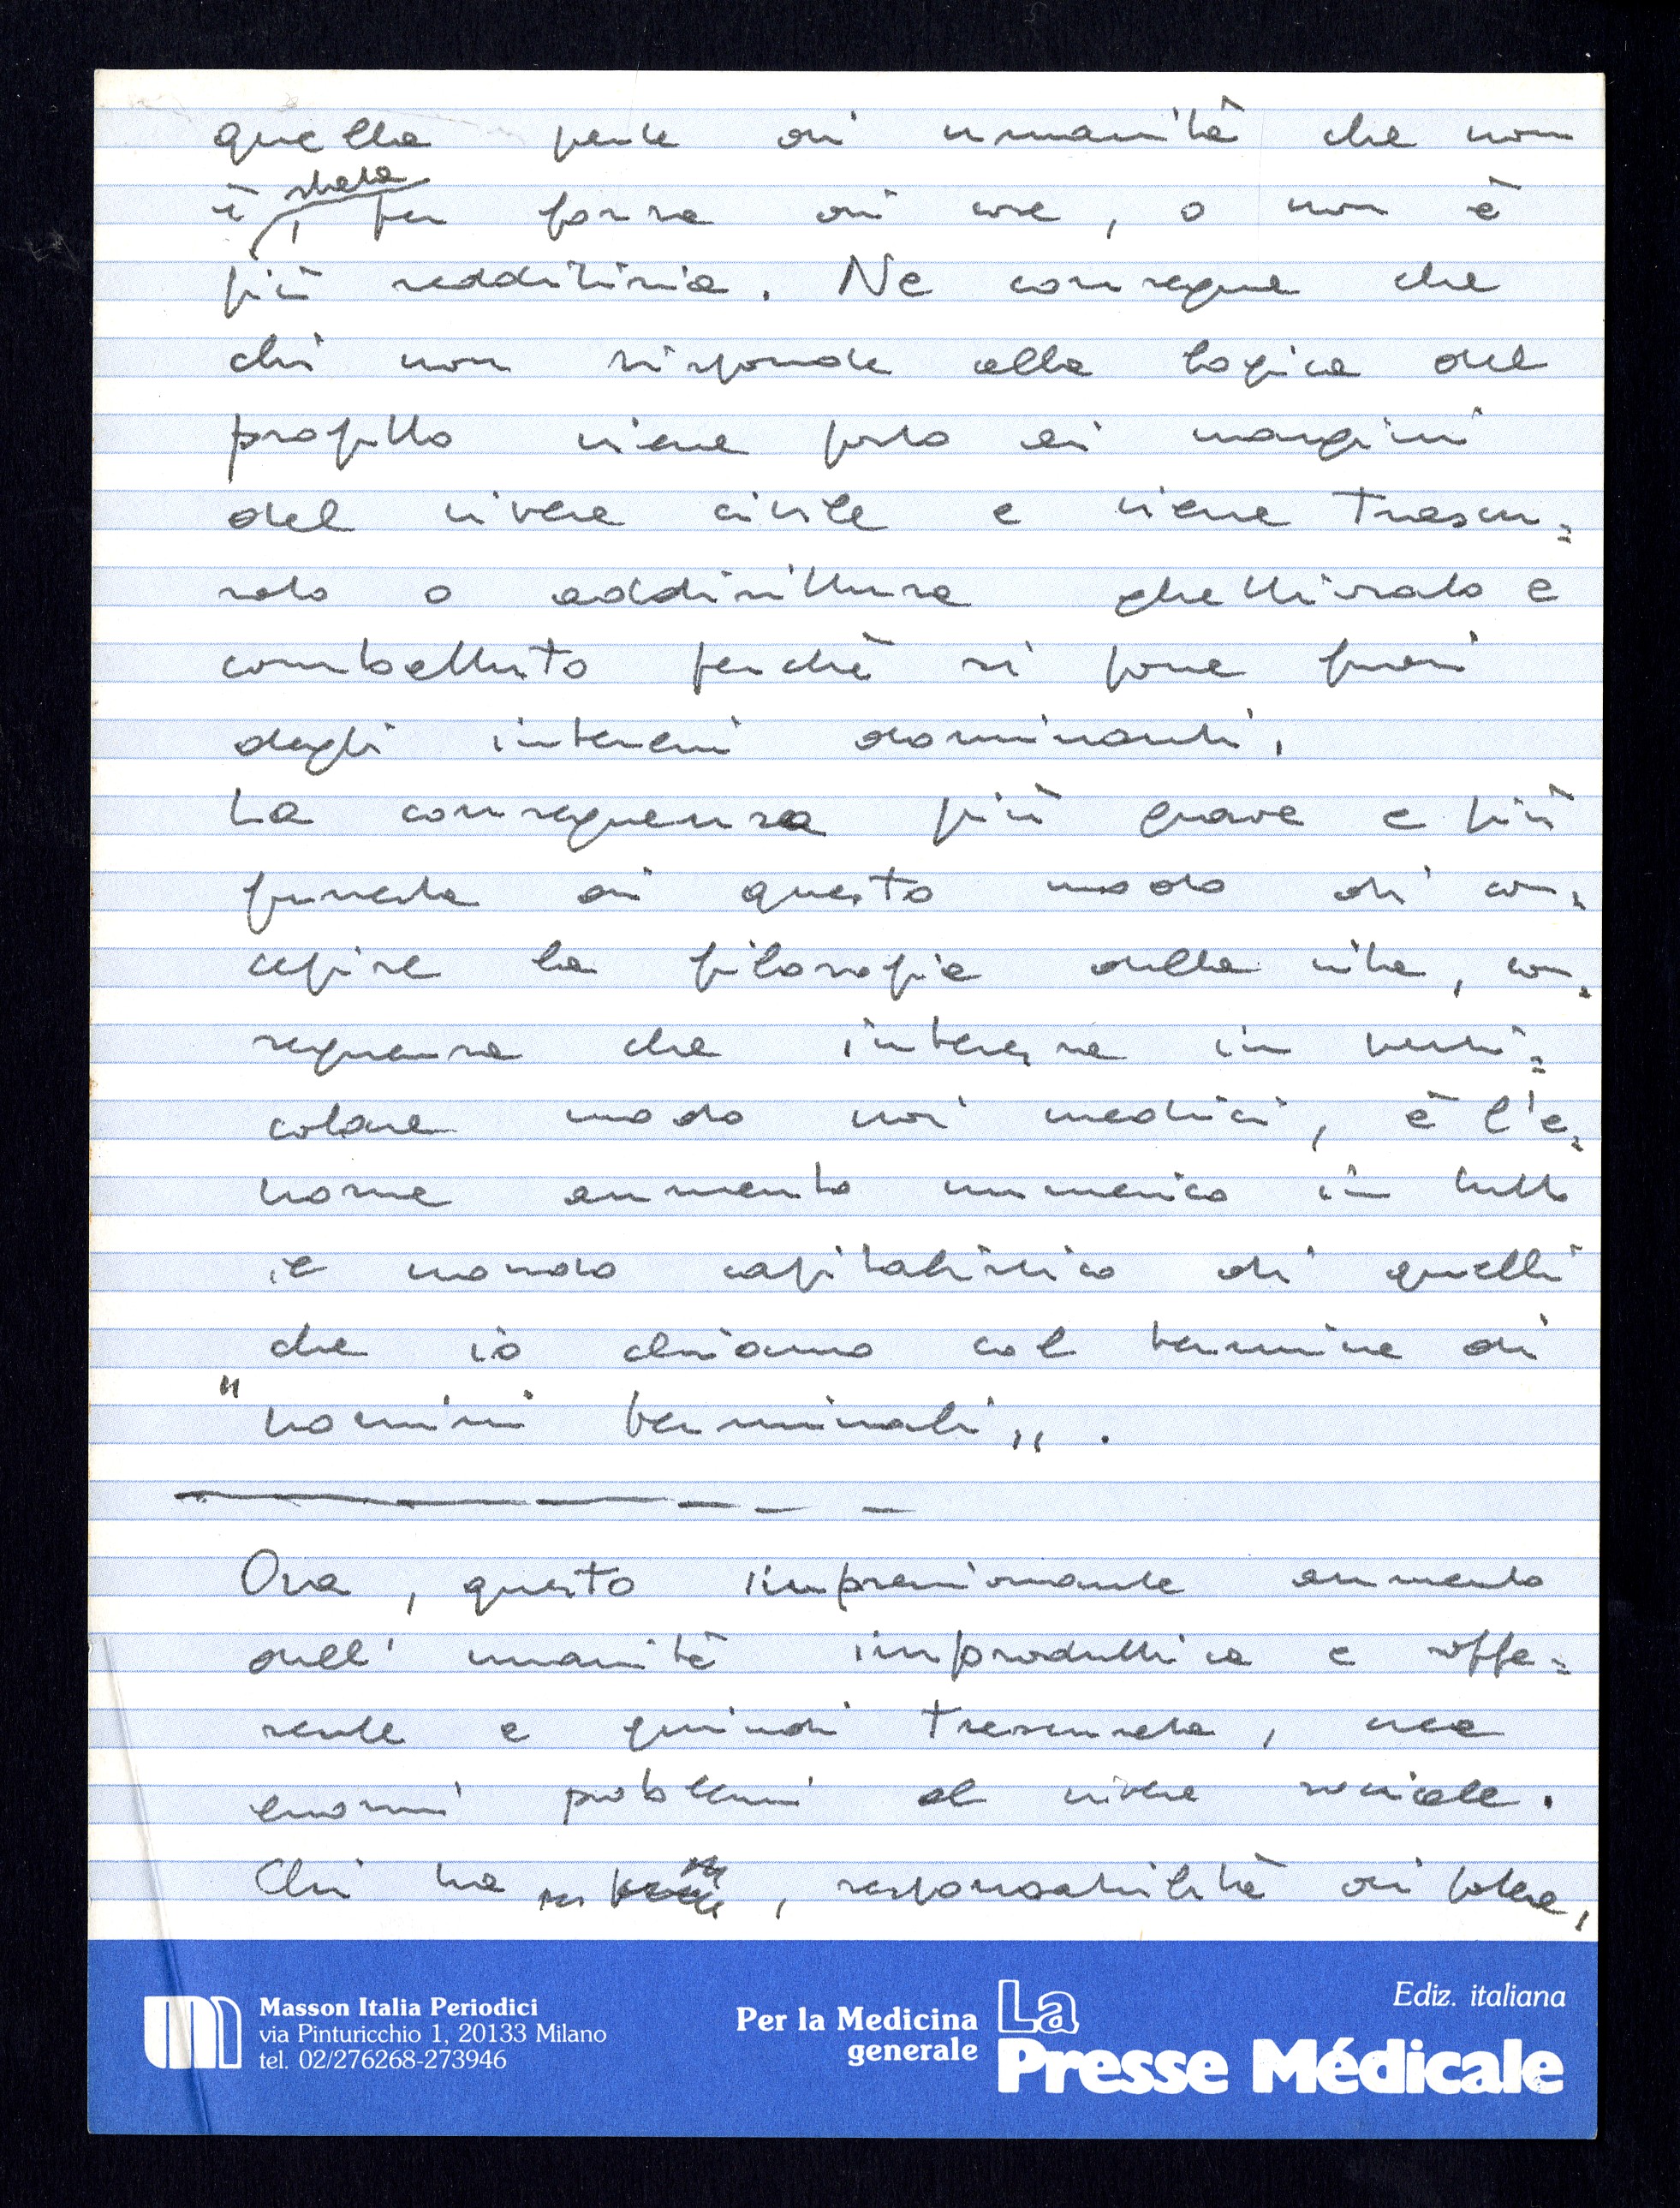 quella parte di umanità che non
è stata, per forza di cose, o non è
più redditizia. Ne consegue che
chi non risponde alla logica del
profitto viene posto ai margini
del vivere civile e viene trascu=
rato o addirittura ghettizzato e
combattuto perchè si pone fuori
degli interessi dominanti.
La conseguenza più grave e più
funesta di questo modo di con=
cepire la filosofia della vita, con=
seguenza che interessa in parti=
colare modo noi medici, è l'e=
norme aumento numerico in tutto
il mondo capitalistico di quelli
che io chiamo col termine di
"uomini terminali".
Ora, questo impressionante aumento
dell'umanità improduttiva e soffe=
rente e quindi trascurata, crea
enormi problemi al vivere sociale.
Chi ha , responsabilità di potere,
Masson Italia Periodici
via Pinturicchio 1, 20133 Milano
tel. 02/276268-273946
Per la Medicina
generale
La
Presse Médicale
Ediz. italiana